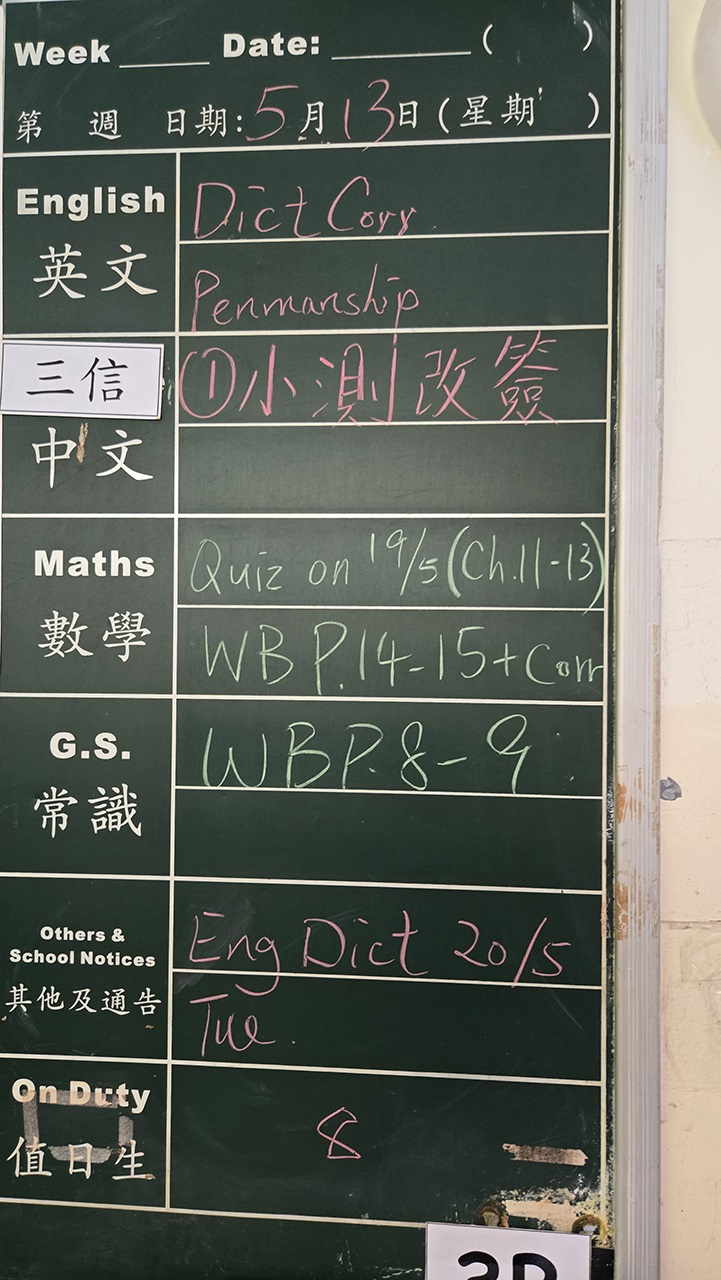 Week ______ Date: _________ (      )
第 週 日期: 5月13日 (星期 )
English
英文
Dict Corr
Penmanship
三信
中文
①小測改簽
Maths
數學
Quiz on 19/5 (Ch.11-13)
WB P.14-15 + Corr
G.S.
常識
WB P.8-9
Others &
School Notices
其他及通告
Eng Dict 20/5
Tue.
On Duty
值日生
8